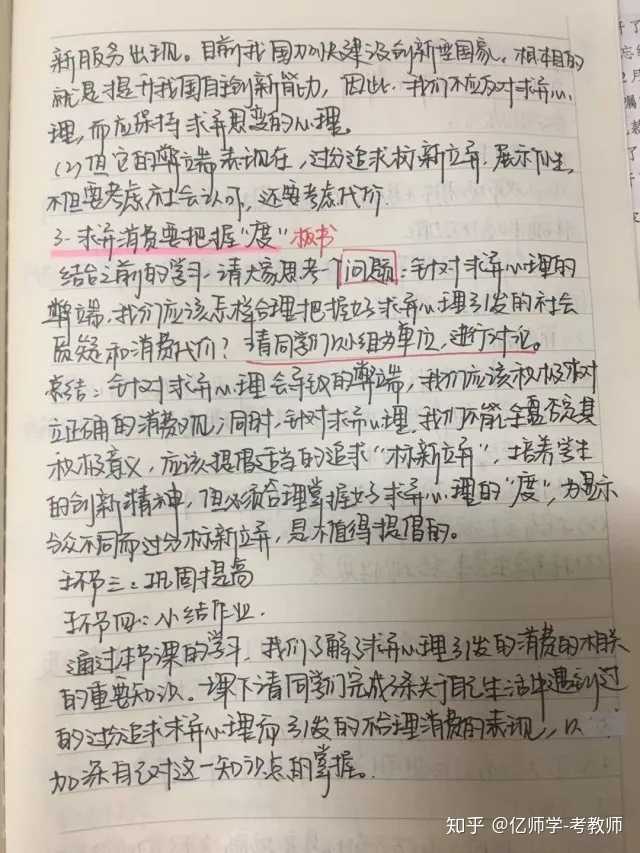 新服务出现。目前我国加快建设创新型国家，根本目的
就是提升我国自主创新能力，因此，我们不应反对求异心
理，而应保持求异思变的心理。
(2)但它的弊端表现在，过分追求标新立异，展示个性，
不但要考虑社会认可，还要考虑代价
3. 求异消费要把握“度” 板书
结合之前的学习，请大家思考一个问题：针对求异心理的
弊端，我们应该怎样合理把握好求异心理引发的社会
质疑和消费代价？请同学们以小组为单位，进行讨论。
总结：针对求异心理会导致的弊端，我们应该积极树
立正确的消费观；同时，针对求异心理，我们不能全盘否定其
积极意义，应该提倡适当的追求“标新立异”，培养学生
的创新精神，但必须合理掌握好求异心理的“度”，为显示
与众不同而过分标新立异，是不值得提倡的。
环节三：巩固提高
环节四：小结作业.
通过本节课的学习，我们了解了求异心理引发的消费的相关
的重要知识。课下请同学们完成关于自己生活中遇到过
的过分追求求异心理而引发的不合理消费的表现，以
加深自己对这一知识点的掌握。
知乎 @亿师学-考教师